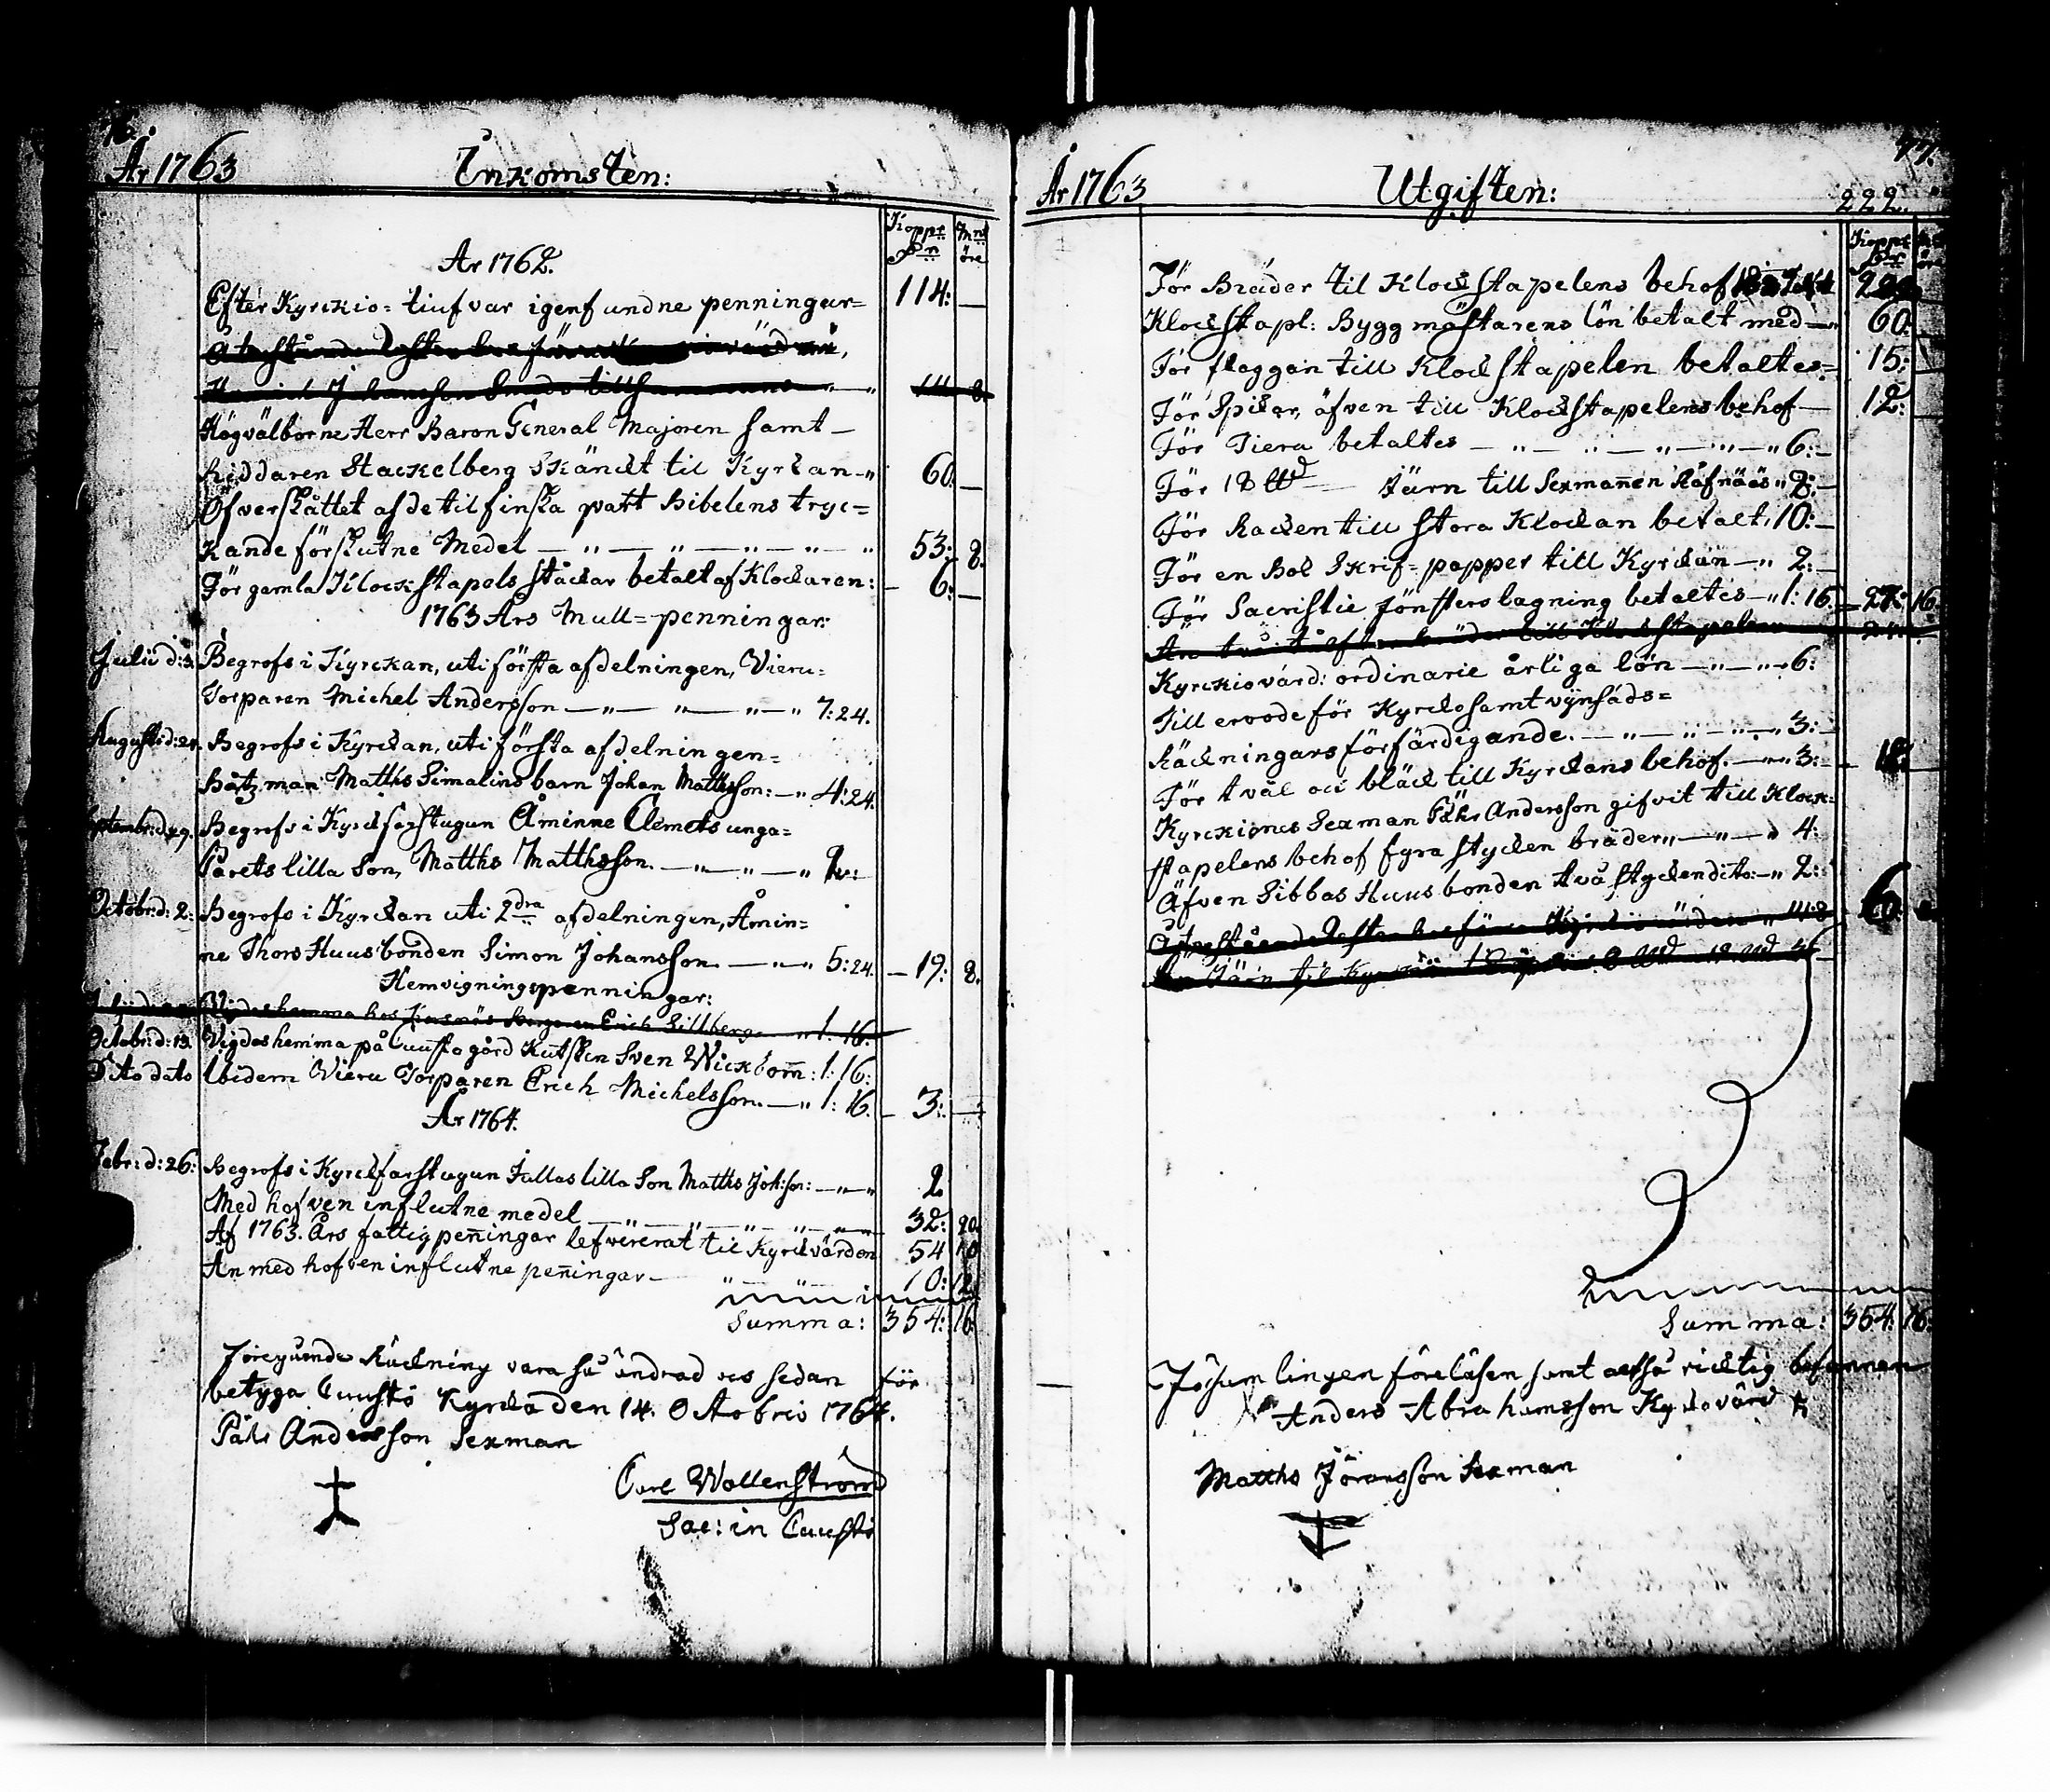 76.
År 1763 Inkomsten:
Koppr Pn Mnt öre
Ar 1762.
Efter Kyrckio=tiufvar igenfundne penningar= 114: —
Återstående
Hinrich Johansson tillsammans 8.
Högvälborne Herr Baron General Majoren samt —
Riddaren Stackelberg Skänckt til Kyrckan —" 60. —
Öfverskåttet af de til finska qvart Bibelens tryc=
kande förskutne Medel — " — " — " — " — " 53: 8.
För gamla Klockstapels ståckar betalt af Klockaren: 6: —
1763 Års Mull=penningar:
Julii d: 3. Begrofs i Kyrckan, uti första afdelningen, Vieru=
Torparen Michel Andersson — " — " — " — " 7:24.
Augusti d: 21. Begrofs i Kyrckan, uti första afdelningen=
Båtzman Matths Simalins barn Johan Matthsson: —" 4:24.
Septembr: d: 29. Begrofs i Kyrckfarstugun Åminne Clemets unga=
Parets lilla Son, Matths Matthsson. — " — " — " 2:
Octobr: d: 2: Begrofs i Kyrckan uti 2dra afdelningen, Åmin=
ne Thors Huusbonden Simon Johansson. — " — " 5:24. — 19: 8.
Hemvigningspenningar:
Vigdes hemma hos Erich Sillberg " 1: 16.
Octobr: d: 13. Vigdes hemma på Cuusto gård Kutsken Sven Wickbom̄: 1: 16:
Dito dato Ibidem Vieru Torparen Erich Michelsson. —" 1: 16. — 3: —
År 1764.
Febr: d: 26: Begrofs i Kyrckfarstugun Jullas lilla Son Matths Joh:son: — " — " 2
Med hafven influtne medel — " — " — " — " — " — 32: 20.
Af 1763. Års fattigpen̄ingar lefvererat til Kyrckvärden 54 10
Än med hofven influtne pen̄ingar — " — " — " — 10: 12
Summa: 354: 16.
Föregående Räckning vara så ändrad oc sedan för
betyga Cuusto Kyrcka den 14. Octobris 1764.
Påhl Andersson Sexman
Carl Wallenström
Sac: in Cuusto
77.
År 1763 Utgiften:
222.
Koppr
För Bräder til Klockstapelens behof
Klockstapl: Byggmästarens lön betalt med —" 60:
För flaggan till Klockstapelen betaltes= 15:
För Spikar, äfven till Klockstapelens behof — 12:
För Tiera betaltes — " — " — " — " — " 6: —
För 18 ℔d — Järn till Sexman̄en Räfnääs " 8: —
För Racken till stora Klockan betalt, 10: —
För en Bok Skrif=papper till Kyrckan —" 2: —
För Sacristie fönsters lagning betaltes —" 1: 16. — 27: 16.
Än två till Klockstapelen
Kyrckiovärd: ordinarie årliga lön — " — " 6:
Till ervode för Kyrcko samt vijnsäds=
Räckningars förfärdigande. — " — " — " — 3: —
För tväl och bläck till Kyrckans behof. —" 3: — 12:
Kyrckiones Sexman Påhl Andersson gifvit till Klock=
stapelens behof fyra stycken bräder " — " — " 4:
Äfven Sibbas Huusbonden två stycken dito: —" 2: 6.
Återstående
Än Järn til
Summa: 354: 16:
I församlingen föreläsen samt altså ricktig befunnen
Anders Abrahamsson Kyrckovärd
Matths Jöransson Sexman